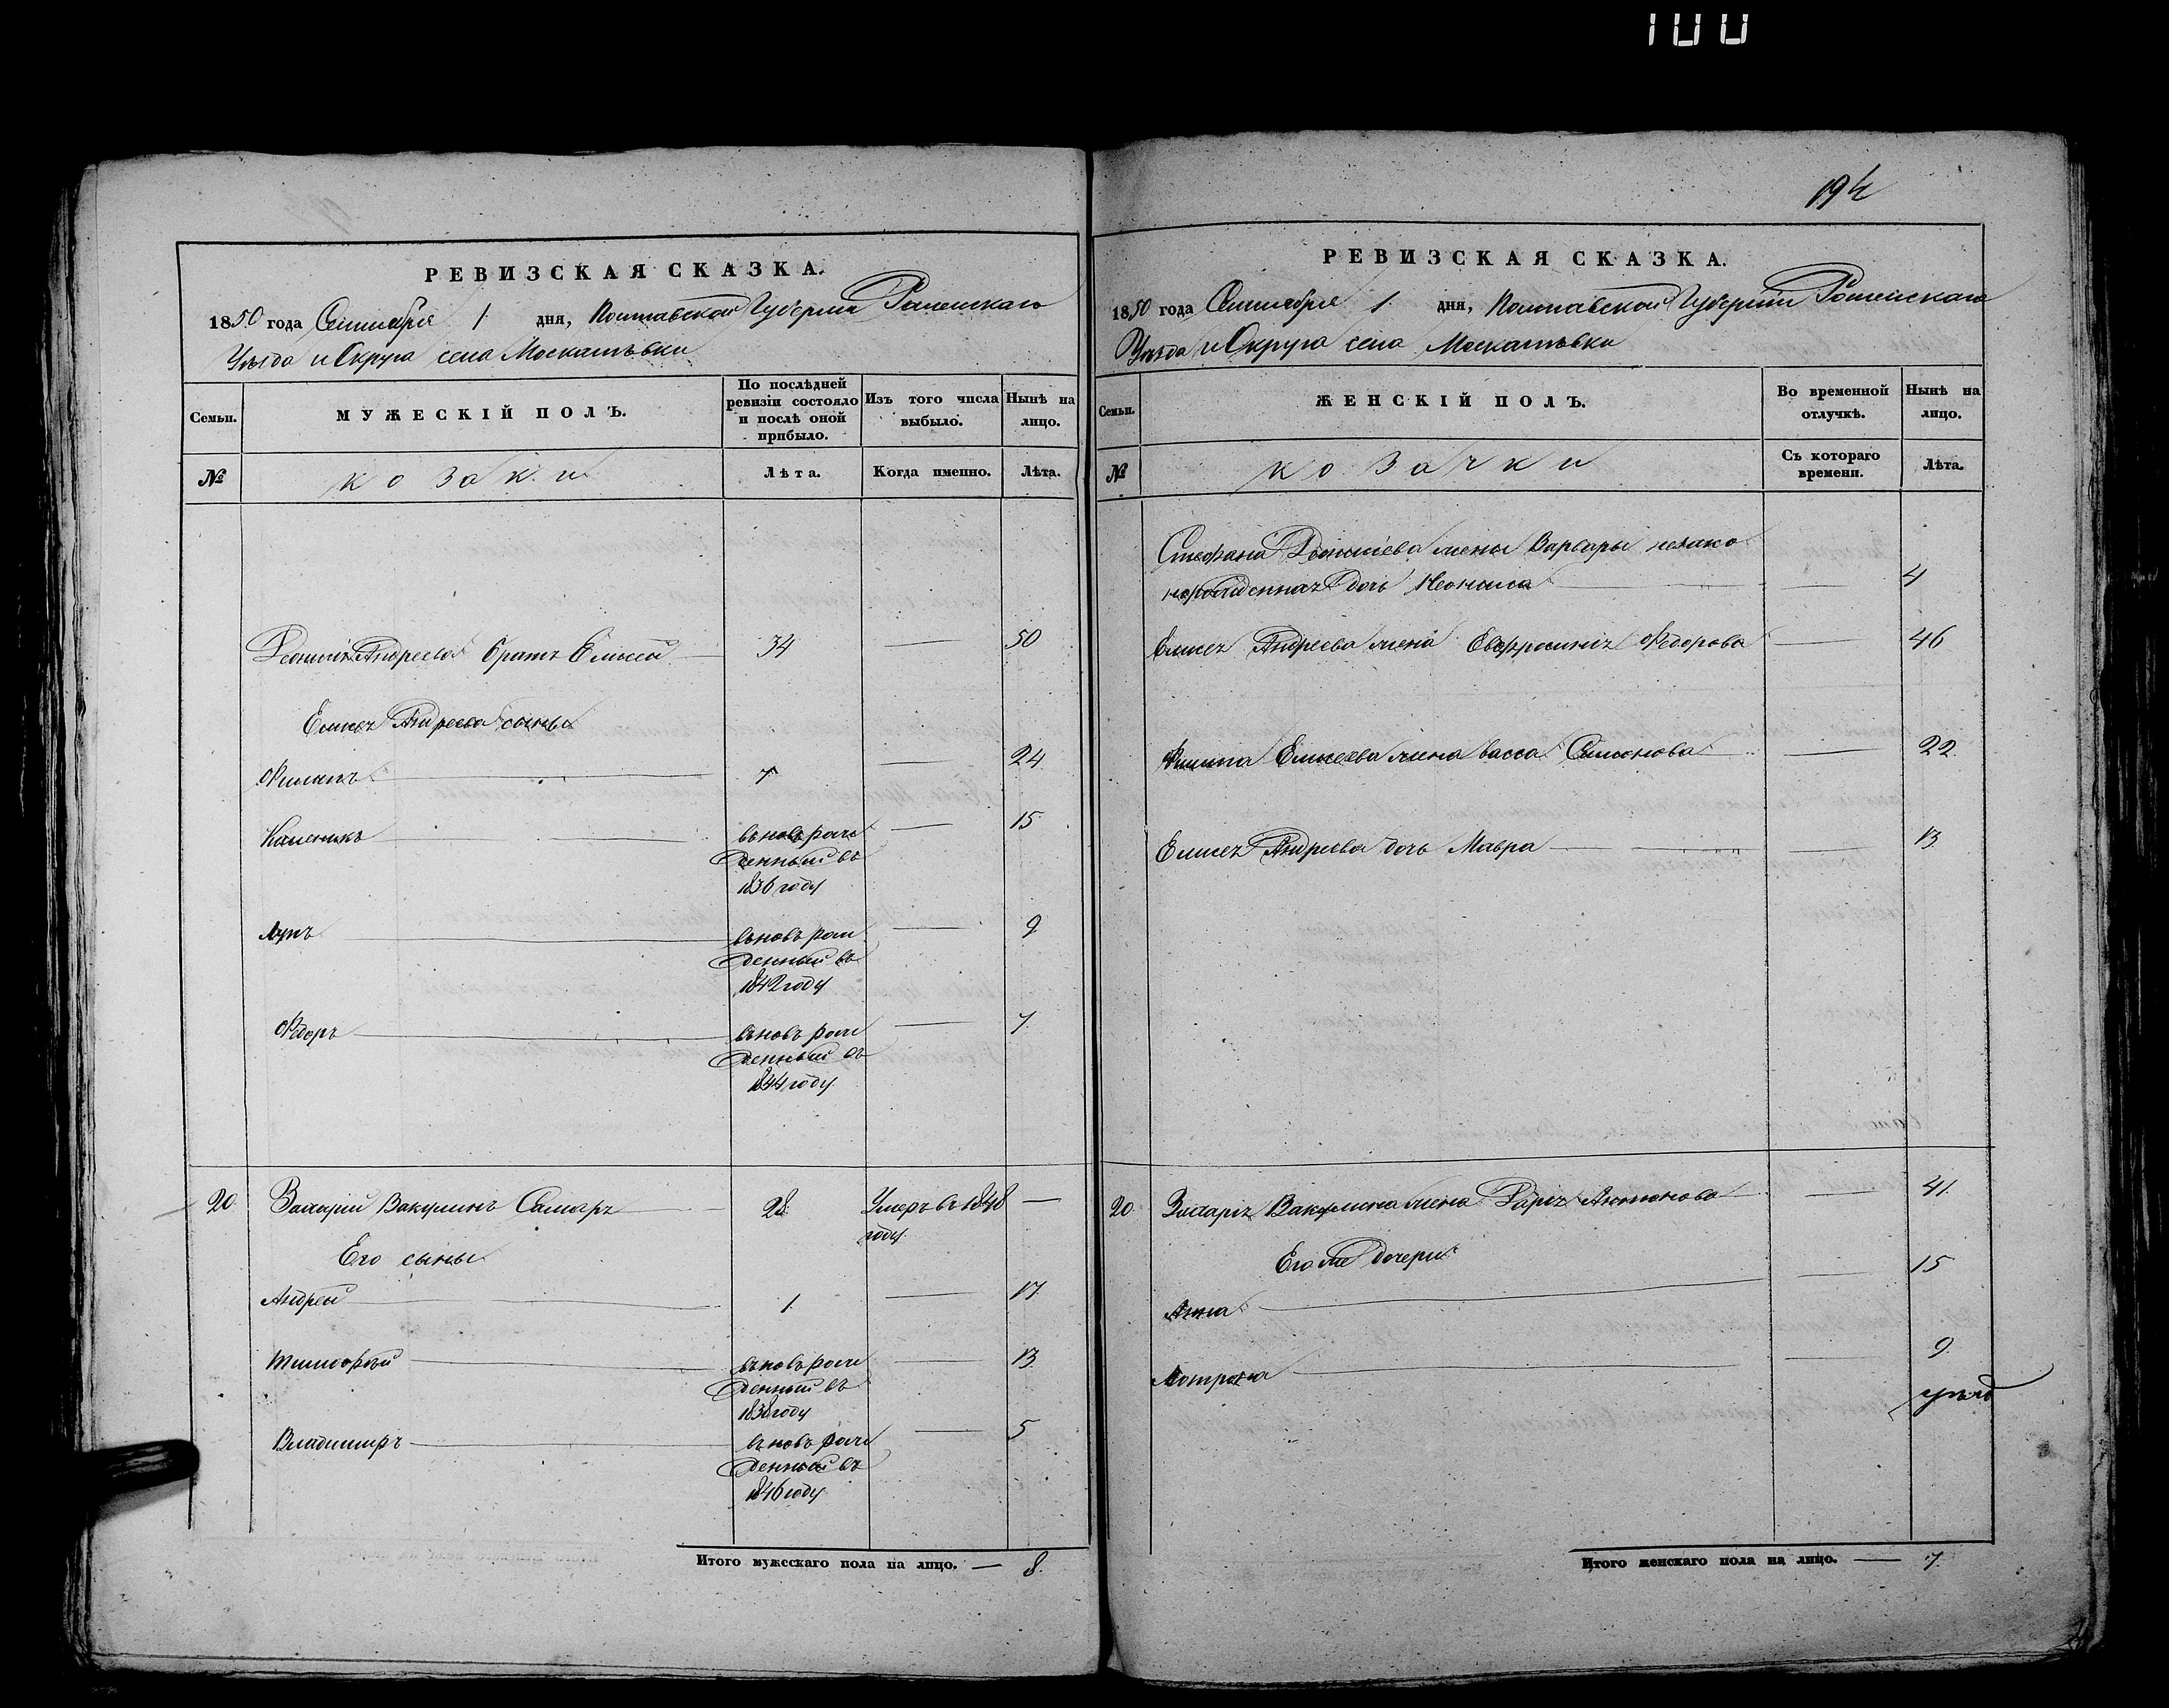 100
194
РЕВИЗСКАЯ СКАЗКА.
1850 года Сентября 1 дня, Полтавской Губернии Роменскаго
Уѣзда и Округа села Москалѣвки
Семьи.
МУЖЕСКІЙ ПОЛЪ.
По послѣдней ревизіи состояло и послѣ оной прибыло.
Изъ того числа выбыло.
Нынѣ на лицо.
№
козаки
Лѣта.
Когда именно.
Лѣта.
Андреева братъ Елисей 34 — 50
Елисея Андреева сыны
Филипъ 7 — 24
Каленикъ вновь рожденный въ 1836 году — 15
Лупъ вновь рожденный въ 1842 году — 9
Федоръ вновь рожденный въ 1844 году — 7
20 Захарій Вакулинъ 28 Умеръ въ 1848 году —
Его сыны
Андрей 1 — 17
Тимофей вновь рожденный въ 1838 году — 13
Владимиръ вновь рожденный въ 1846 году — 5
Итого мужескаго пола на лицо. — 8.
РЕВИЗСКАЯ СКАЗКА.
1850 года Сентября 1 дня, Полтавской Губернии Роменскаго
Уѣзда и Округа села Москалѣвки
Семьи.
ЖЕНСКІЙ ПОЛЪ.
Во временной отлучкѣ.
Нынѣ на лицо.
№
козачки
Съ котораго времени.
Лѣта.
Стефана жены Варвары незако
норожденная дочь — 4
Елисея Андреева жена Евфросинія Федорова — 46
Филипа Елисеева жена Васса Семенова — 22
Елисея Андреева дочь Мавра — 13
20 Захарія Вакулина жена Дарія Антонова — 41
Его же дочери
Анна — 15
Мотрона — 9
Итого женскаго пола на лицо. — 7.